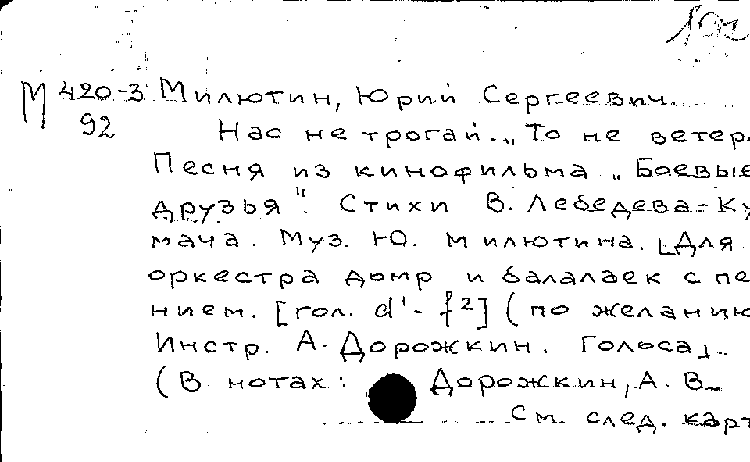 М 420-3 Милютин, Юрий Сергеевич.
92 Нас не трогай. „То не ветер.
Песня из кинофильма „Боевые
друзья". Стихи В. Лебедева-Ку
мача. Муз. Ю. Милютина. [Для
оркестра домр и балалаек с пе
нием. [гол. d¹- f²] (по желанию
Инстр. А. Дорожкин. Голоса].
(В нотах: Дорожкин, А. В.
См. след. карт